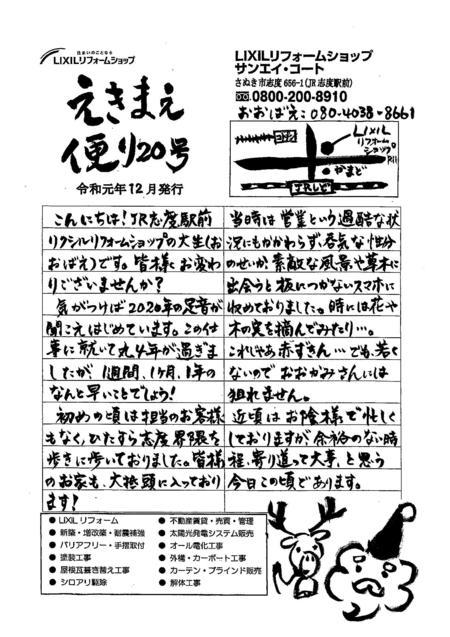 住まいのことなら
LIXILリフォームショップ
えきまえ
便り20号
令和元年12月発行
LIXILリフォームショップ
サンエイ・コート
さぬき市志度656-1(JR志度駅前)
0800-200-8910
おおばえ:080-4038-8661
LIXIL
リフォーム
ショップ。
R11
かまど
JRしど
こんにちは!JR志度駅前
リクシルリフォームショップの大生(お
おばえ)です。皆様にお変わ
りございませんか?
気がつけば2020年の足音が
聞こえはじめています。この仕
事に就いて丸4年が過ぎま
したが1週間、1ヶ月、1年の
なんと早いことでしょう!
初めの頃は担当のお客様
もなく、ひたすら志度界隈を
歩きに歩いておりました。皆様
のお家も、大抵頭に入っており
ます!
当時は営業という過酷な状
況にもかかわらず、呑気な性分
のせいか、素敵な風景や草木に
出会うと板につかないスマホに
収めておりました。時には花や
木の実も摘んでみたり…。
これじゃあ赤ずきん…でも、若く
ないのでおおかみさんには
狙れません。
近頃はお陰様で忙しく
しておりますが余裕のない時
程、寄り道って大事、と思う
今日この頃であります。
● LIXILリフォーム
● 新築・増改築・耐震補強
● バリアフリー・手摺取付
● 塗装工事
● 屋根瓦葺き替え工事
● シロアリ駆除
● 不動産賃貸・売買・管理
● 太陽光発電システム販売
● オール電化工事
● 外構・カーポート工事
● カーテン・ブラインド販売
● 解体工事